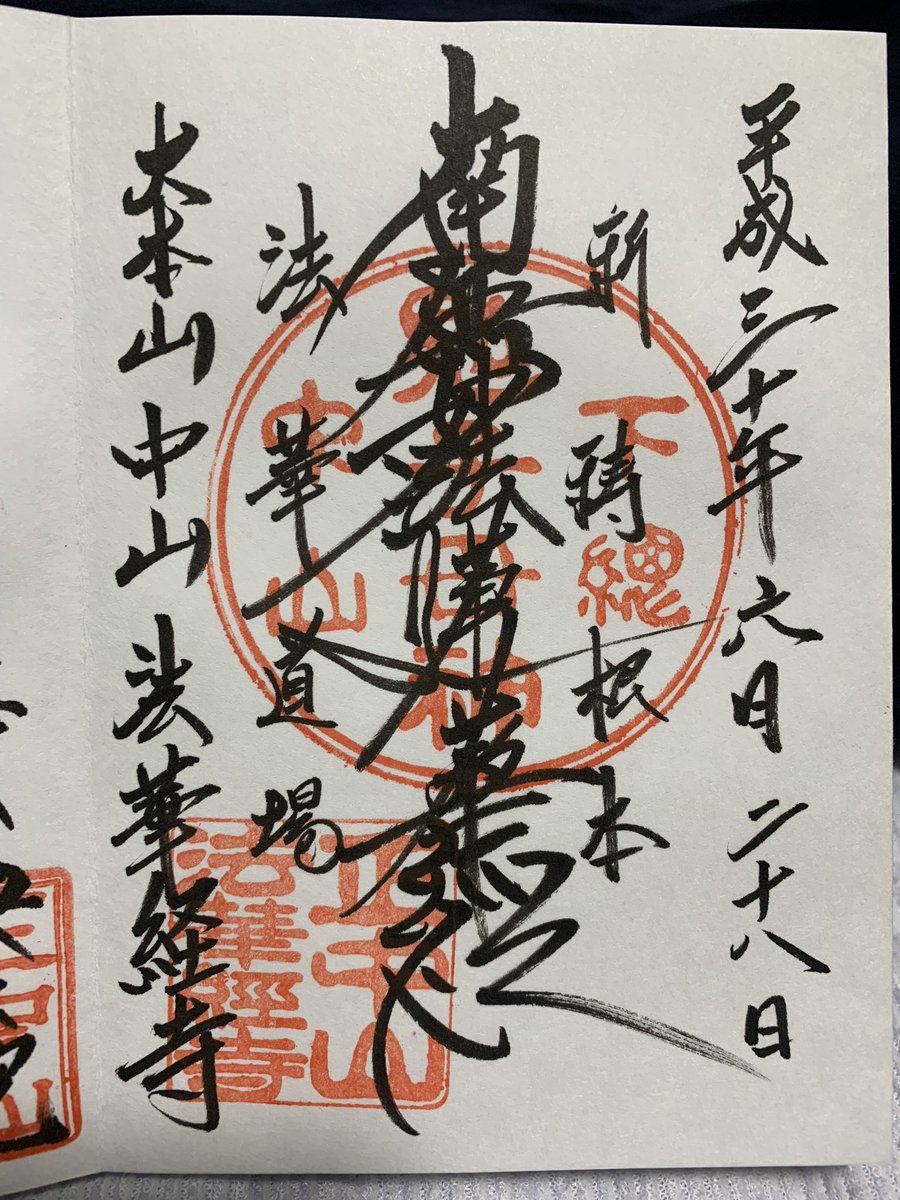 平成三十年六月二十八日
祈祷根本
南無妙法蓮華経
法華道場
大本山中山法華経寺
下總
鬼子母神
中山
正中山
法華經寺